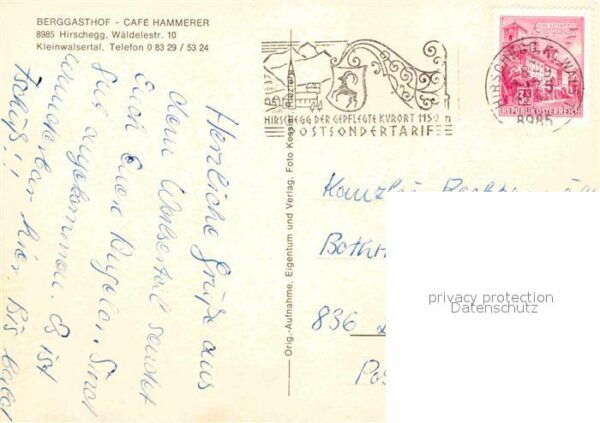 BERGGASTHOF - CAFÉ HAMMERER
8985 Hirschegg, Wäldelestr. 10
Kleinwalsertal, Telefon 0 83 29 / 53 24
HIRSCHEGG DER GEPFLEGTE KURORT 1150 m
POSTSONDERTARIF
HIRSCHEGG, Kl. W.
8985
REPUBLIK ÖSTERREICH
Herzliche Grüße aus
dem Walsertal sendet
Euch Eure Angela. Sind
gut angekommen. Es ist
wunderbar hier. Bis bald
Tschüß!!
Orig.-Aufnahme, Eigentum und Verlag, Foto Kessler, Riezlern
Kanzlei
836
privacy protection
Datenschutz